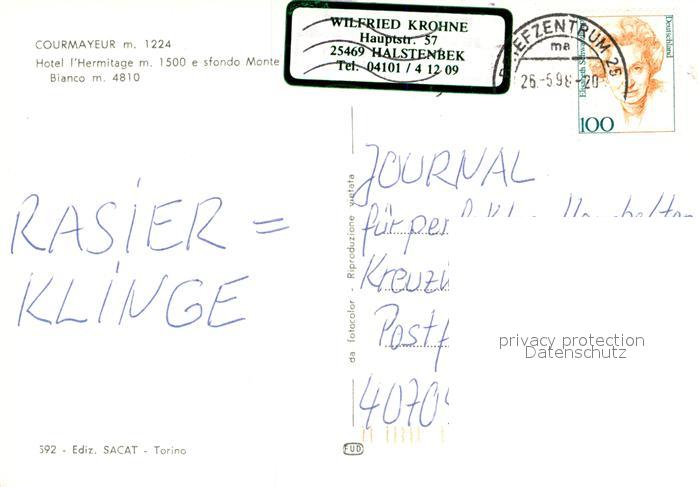 COURMAYEUR m. 1224
Hotel l'Hermitage m. 1500 e sfondo Monte
Bianco m. 4810
WILFRIED KROHNE
Hauptstr. 57
25469 HALSTENBEK
Tel. 04101 / 4 12 09
BRIEFZENTRUM 25
ma
26.-5.98-20
Deutschland
100
RASIER =
KLINGE
JOURNAL
für per
Kreuzw
Postf
4070
da fotocolor - Riproduzione vietata
privacy protection
Datenschutz
592 - Ediz. SACAT - Torino
FUD